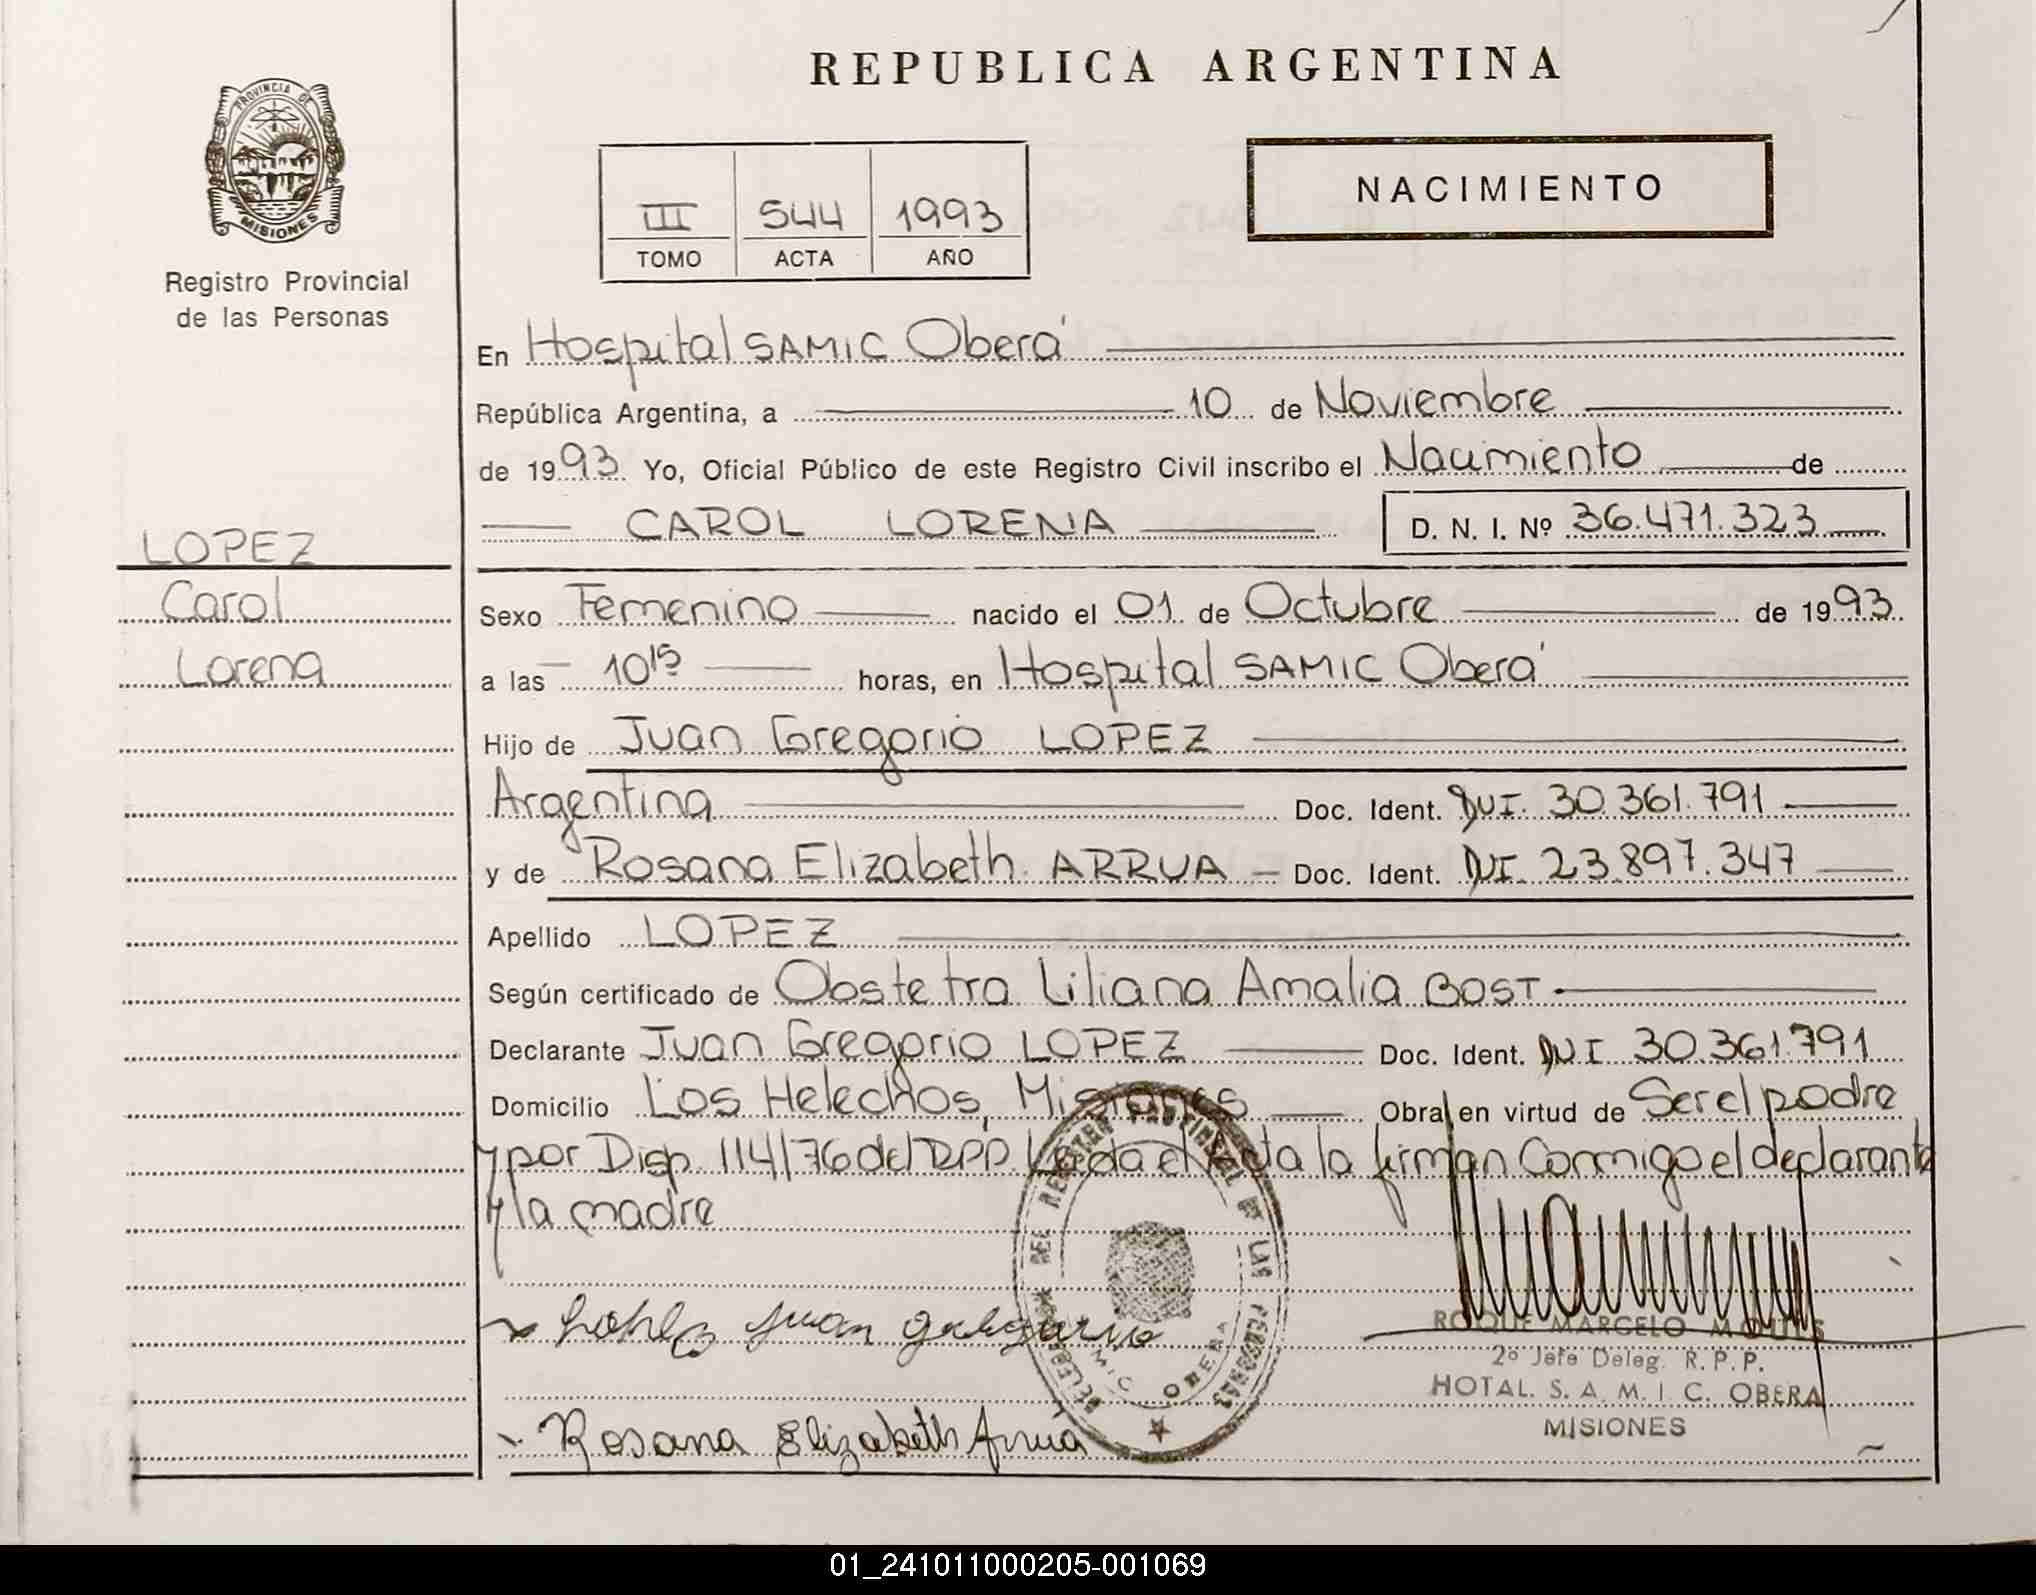 REPUBLICA ARGENTINA
PROVINCIA DE
MISIONES
Registro Provincial
de las Personas
III 544 1993
TOMO ACTA AÑO
NACIMIENTO
En Hospital SAMIC Oberá
República Argentina, a 10 de Noviembre
de 1993 Yo, Oficial Público de este Registro Civil inscribo el Nacimiento de
CAROL LORENA D. N. I. Nº 36.471.323
LOPEZ
Carol
Lorena
Sexo Femenino nacido el 01 de Octubre de 1993
a las 10 15 horas, en Hospital SAMIC Oberá
Hijo de Juan Gregorio LOPEZ
Argentina Doc. Ident. DNI. 30.361.791
y de Rosana Elizabeth ARRUA Doc. Ident. DNI. 23.897.347
Apellido LOPEZ
Según certificado de Obstetra Liliana Amalia BOST
Declarante Juan Gregorio LOPEZ Doc. Ident. DNI 30.361.791
Domicilio Los Helechos, Misiones Obra en virtud de Ser el padre
y por Disp. 114/76 del RPP Leida el Acta la firman Conmigo el declarante
y la madre
Lopez Juan gregorio
Rosana Elizabeth Arrua
DEL REGISTRO PROVINCIAL DE LAS PERSONAS
OBERA
ROQUE MARCELO
2º Jefe Deleg. R. P. P.
HOTAL. S. A. M. I. C. OBERA
MISIONES
01_241011000205-001069